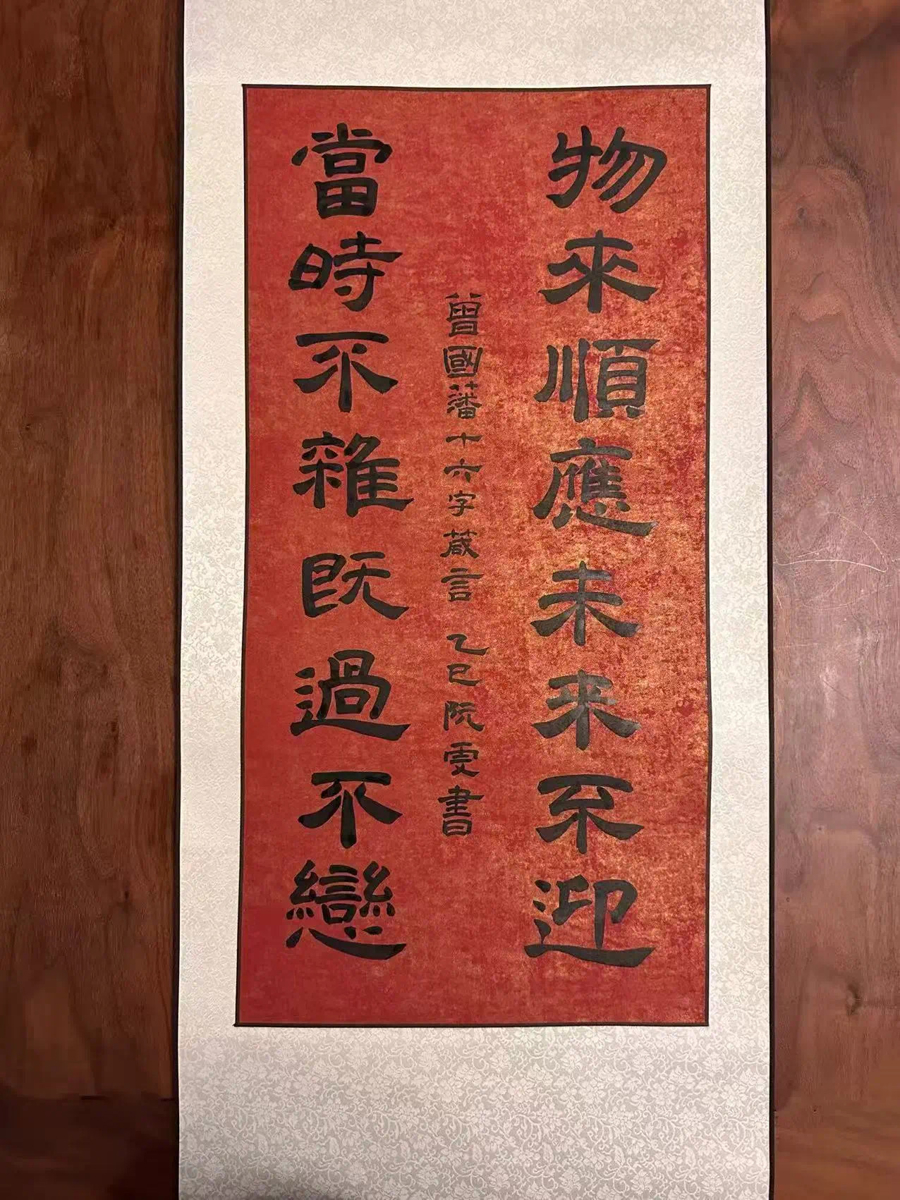 物來順應未来不迎
當時不雜既過不戀
曾國藩十六字箴言 乙巳阮雯書